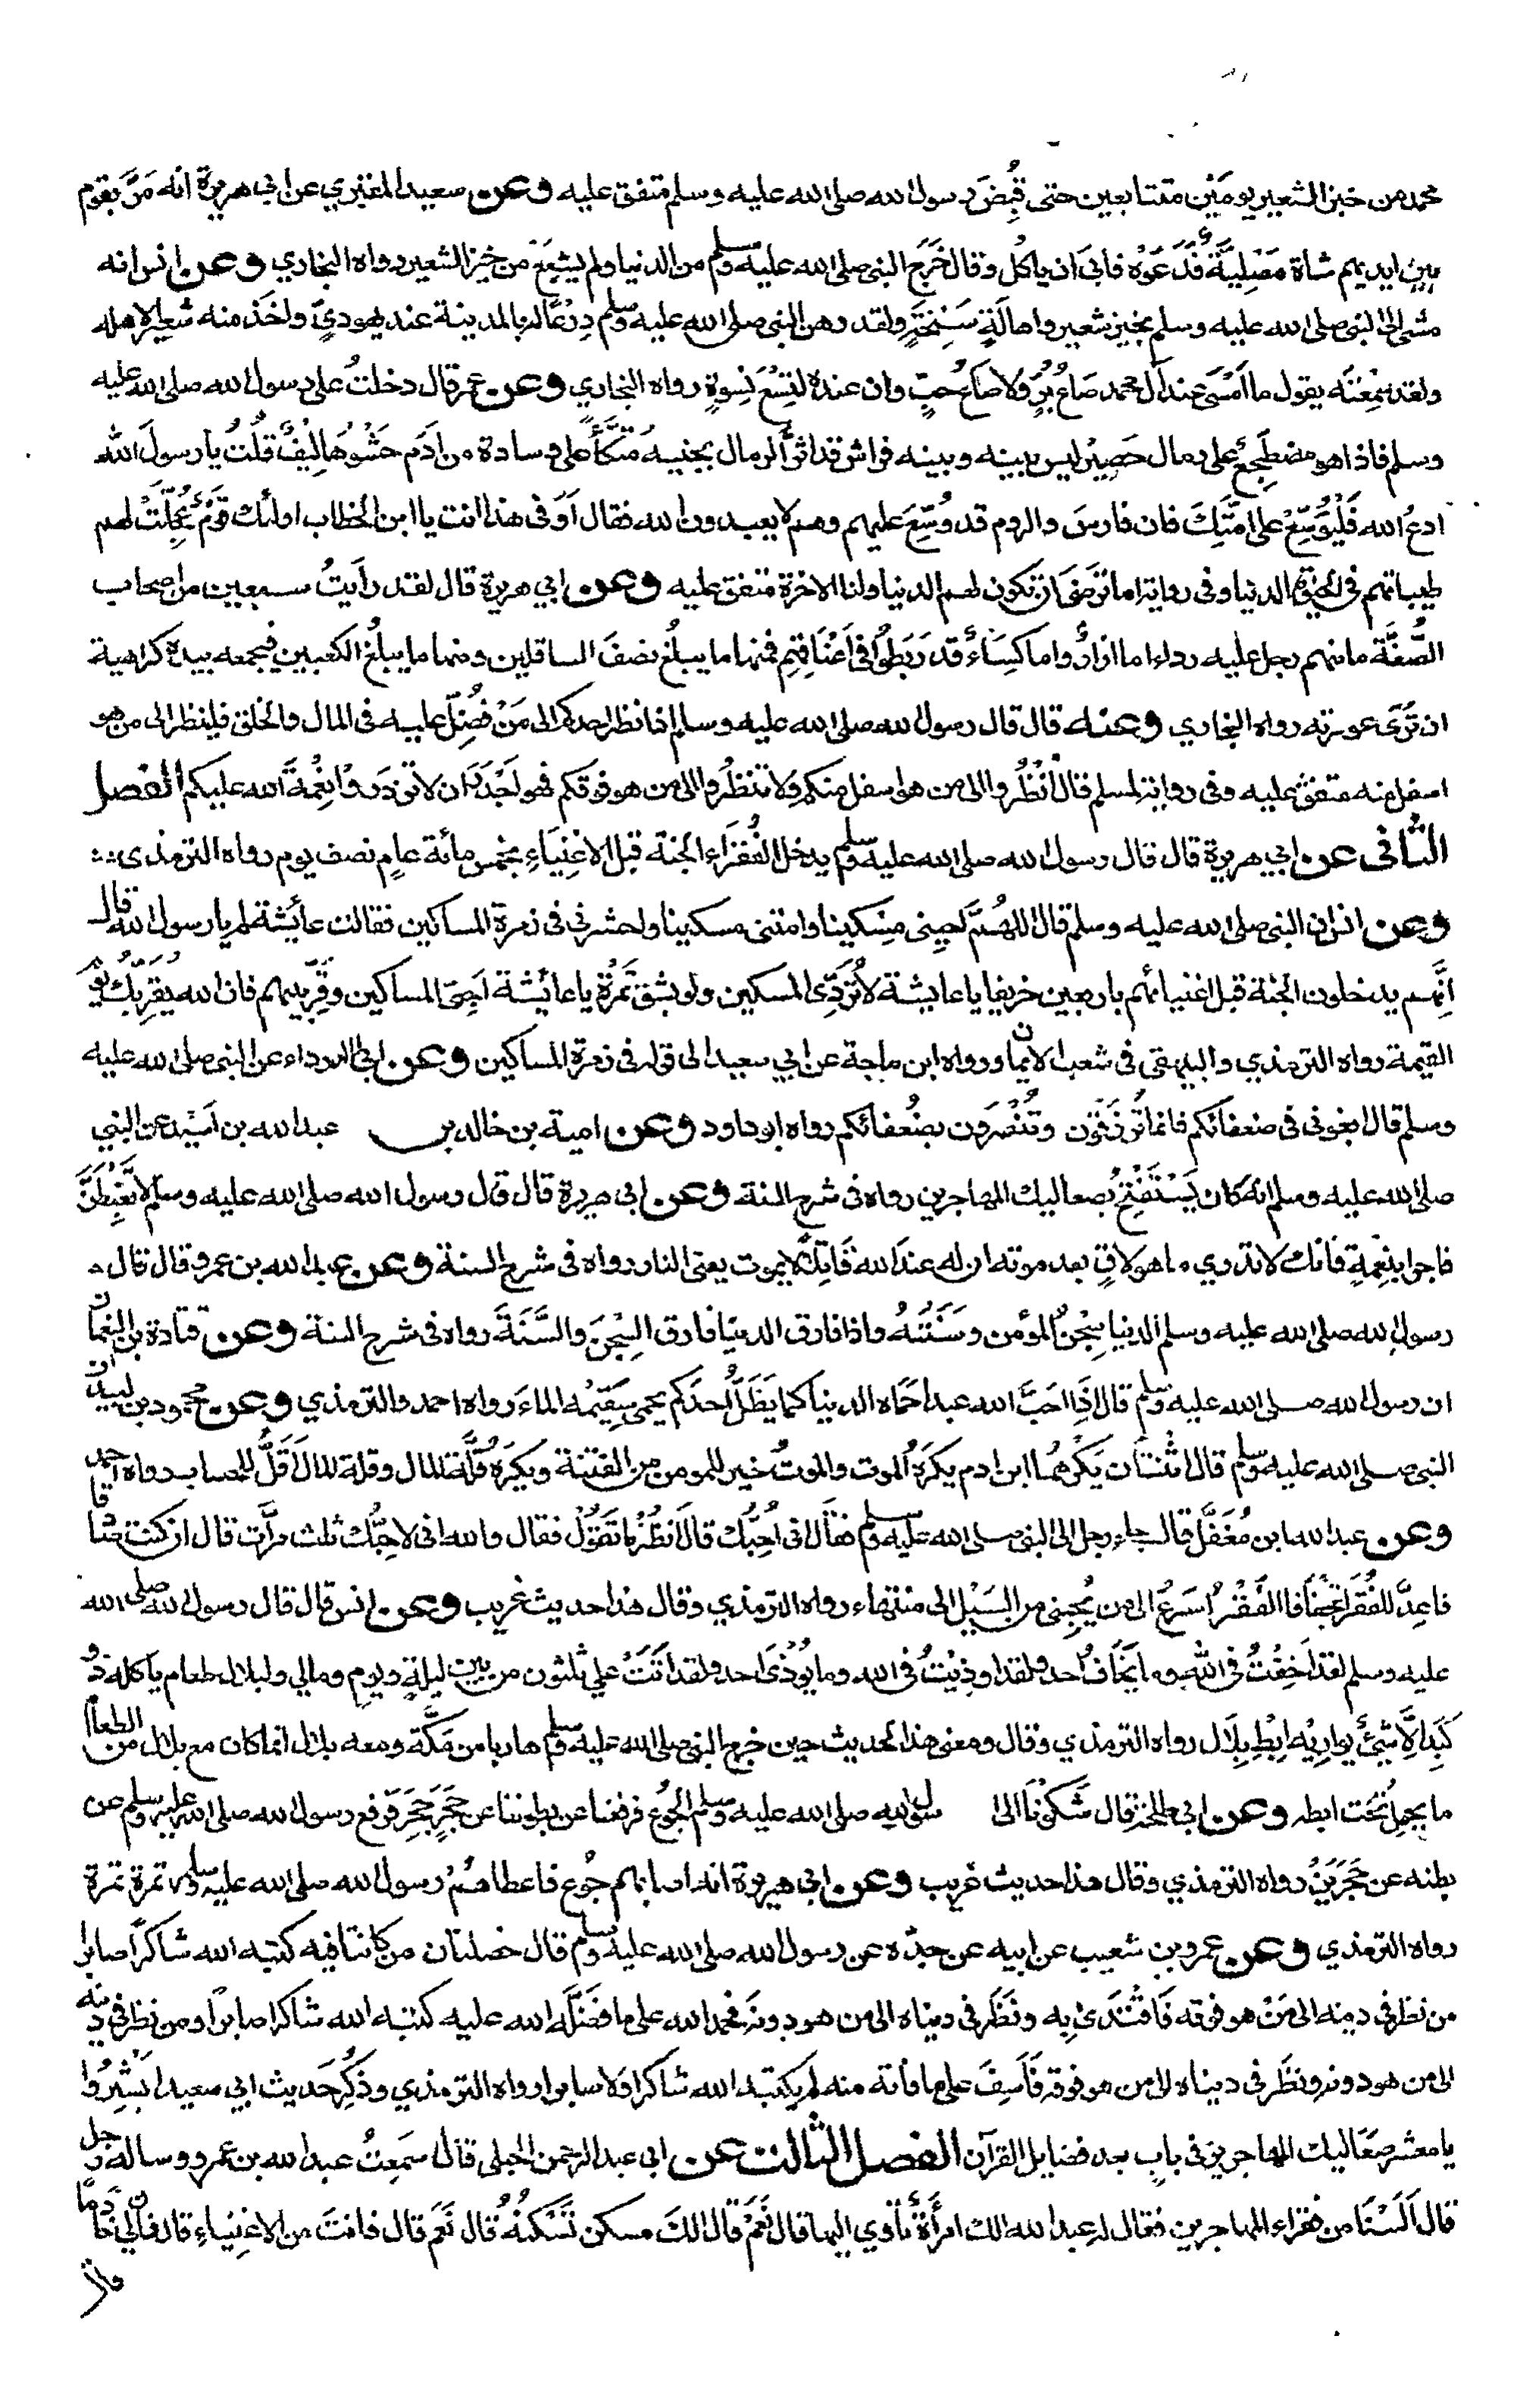 محمد من خبز الشعير يومَيْن متتابعين حتى قُبِضَ رسول الله صلى الله عليه وسلم متفق عليه وعن سعيد المقبري عن ابي هريرة انه مَرَّ بقوم
بين ايديهم شاة مَصْلِيَّةٌ فَدَعَوْه فابىَ ان ياكُل وقال خَرَجَ النبى صلى الله عليه وسلم من الدنيا ولم يشبَعْ من خبز الشعير رواه البخاري وعن انس انه
مشى الى النبى صلى الله عليه وسلم بخبز شعير واهالَةٍ سَنِخَةٍ ولقد رهن النبى صلى الله عليه وسلم دِرْعًا له بالمدينة عند يهوديٍّ واخذ منه شعيرا لاهله
ولقد سَمِعْتُه يقول ما اَمْسَى عند آل محمد صَاعُ بُرٍّ ولا صاعُ حبٍّ وان عنده لتِسْعَ نِسْوةٍ رواه البخاري وعن عمر قال دخلتُ على رسول الله صلى الله عليه
وسلم فاذا هو مضطَجِعٌ على رمال حَصِيْرٍ ليس بينه وبينه فراش قد اثّرَ الرمال بجنبه مُتَّكَأً على وسادة من اَدَم حَشْوُهَا لِيْفٌ قلتُ يا رسولَ الله
ادعُ الله فَلْيُوَسِّعْ على امّتِكَ فان فارسَ والروم قد وُسِّعَ عليهم وهم لا يعبدون الله فقال اَوَ فى هذا انت يا ابن الخطاب اولئك قَوْمٌ عُجِّلَتْ لهم
طيباتهم فى الحيوة الدنيا وفى رواية اما ترضَى اَن تكون لهم الدنيا ولنا الاخرة متفق عليه وعن ابي هريرة قال لقد رأيتُ سبعين من اصحاب
الصُّفَّة ما منهم رجل عليه رداء اما ازارٌ واما كِسَاءٌ قد رَبَطُوا فى اَعْنَاقِهِم فمنها ما يبلُغ نصفَ الساقين ومنها ما يبلغ الكعبين فيجمعه بيده كراهية
ان تُرَى عورته رواه البخاري وعنه قال قال رسول الله صلى الله عليه وسلم اذا نظر احدكم الى مَنْ فُضِّلَ عليه فى المال والخلق فلينظر الى من هو
اسفل منه متفق عليه وفى رواية لمسلم قال اُنْظُروا الى من هو اسفل منكم ولا تنظُروا الى من هو فوقكم فهو اَجْدَرُ ان لا تزدَروا نِعْمةَ الله عليكم الفصل
الثانى عن ابي هريرة قال قال رسول الله صلى الله عليه وسلم يدخل الفُقَرَاء الجنة قبل الاغنِيَاءِ بخمس مائة عامٍ نصف يوم رواه الترمذى
وعن انس ان النبى صلى الله عليه وسلم قال اللهُمَّ احيِنِى مِسْكِينا وامتنى مسكينا واحشرنى فى زمرة المساكين فقالت عائشة لم يا رسول الله قال
اِنَّهم يدخلون الجنة قبل اغنيائهم باربعين خريفا يا عايشة لا تُرَدِّى المسكين ولو بشق تَمْرَةٍ يا عائشة اَحِبّى المساكين وقَرِّبيهم فان الله يُقَرِّبُك يوم
القيمة رواه الترمذي والبيهقى فى شعب الايمان ورواه ابن ماجة عن ابي سعيد الى قوله فى زمرة المساكين وعن ابى الدرداء عن النبى صلى الله عليه
وسلم قال ابغونى فى ضعفائكم فانما تُرزَقون وتُنْصَرون بضُعفائكم رواه ابو داود وعن امية بن خالد بن عبد الله بن اَسِيْد عن النبي
صلى الله عليه وسلم انه كان يَسْتَفْتِحُ بصعاليك المهاجرين رواه فى شرح السنة وعن ابى هريرة قال قال رسول الله صلى الله عليه وسلم لا تَغْبِطَنَّ
فاجرا بنِعْمةٍ فانك لا تدري ما هو لاقٍ بعد موته ان له عند الله قَاتِلًا لا يموت يعنى النار رواه فى شرح السنة وعن عبد الله بن عمرو قال قال
رسول الله صلى الله عليه وسلم الدنيا سِجْنُ المؤمن وسَنَتُهُ واذا فارق الدنيا فارق السِجْنَ والسَّنَةَ رواه فى شرح السنة وعن قتادة بن النعمان
ان رسول الله صلى الله عليه وسلم قال اذَا احَبَّ الله عبدا حَمَاه الدنيا كما يَظَلُّ اَحدُكم يحمى سَقِيْمَه الماءَ رواه احمد والترمذي وعن محمود بن لبيد ان
النبى صلى الله عليه وسلم قال اثنتَان يَكْرَهُهُما ابن ادم يكرَهُ الموت والموتُ خير للمومن من الفتنة ويكرَهُ قلَّةَ المال وقلة المال اَقلُّ للحساب رواه احمد
وعن عبد الله ابن مُغَفَّل قال جاء رجل الى النبى صلى الله عليه وسلم فقَال انى اُحِبُّك قالَ انظُرْ ما تَقوْلُ فقال والله انى لاحِبُّك ثلث مرّات قال ان كنت صادقا
فاعِدَّ للفَقْرِ تِجْفَافًا الفَقْرُ اَسرَعُ الى من يُحِبنى من السَيْل الى منتهاه رواه الترمذي وقال هذا حديث غريب وعن انس قال قال رسول الله صلى الله
عليه وسلم لقد اُخِفْتُ فى الله وما يُخَافُ احد ولقد اوذِيْتُ فى الله وما يُوْذَى احد ولقد اَتَتْ علي ثلثون من بين ليلةٍ ويومٍ ومالي ولبلال طعام ياكله ذو
كَبِد اِلَّا شَيْئٌ يوارِيْه اِبْطُ بِلَال رواه الترمذي وقال ومعنى هذا الحديث حين خرج النبى صلى الله عليه وسلم هاربا من مَكَّة ومعه بلال انما كان مع بلال من الطعام
ما يحمِلُ تَحْت ابطه وعن ابي طلحة قال شَكَوْنَا الى رسول الله صلى الله عليه وسلم الجُوْعَ فرفعنا عن بطوننا عن حَجَرٍ حَجَرٍ فرفع رسول الله صلى الله عليه وسلم عن
بطنه عن حَجَرَيْن رواه الترمذي وقال هذا حديث غريب وعن ابى هريرة انه اصابهم جُوْع فاعطاهُمْ رسول الله صلى الله عليه وسلم تمرة تمرة
رواه الترمذي وعن عمرو بن شعيب عن ابيه عن جدّه عن رسول الله صلى الله عليه وسلم قال خصلتان من كانتا فيه كتبه الله شاكراً صابرا
من نظر فى دينه الى مَنْ هو فوقه فَاقْتَدَى بِه ونَظَر فى دنياه الى من هو دونه فحمد الله على ما فَضَّلَه الله عليه كتبه الله شاكرا صابرًا ومن نظر فى دينه
الى من هو دونه ونظَر فى دنياه الى من هو فوقه فَاَسِفَ على ما فاته منه لم يكتبه الله شاكرا ولا صابرا رواه الترمذي وذُكِرَ حَديث ابي سعيد ابْشِرُوا
يا معشر صَعَاليك المهاجرين فى بابٍ بعد فضايل القرآن الفصل الثالث عن ابي عبد الرحمن الحبلى قال سَمِعتُ عبد الله بن عمرو وساله رجل
قال اَلَسْنَا من فقراء المهاجرين فقال له عبد الله الك امرأَةٌ تأوي اليها قال نَعَمْ قال الكَ مسكن تَسْكُنُهُ قال نَعَم قال فانتَ من الاغنِيَاءِ قال فان لي خادِمًا
قال